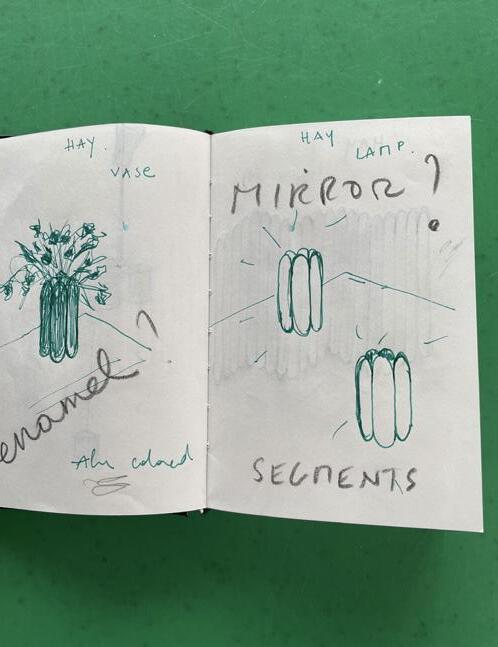 HAY.
VASE
enamel?
Alu colored
HAY
LAMP.
MIRROR?
SEGMENTS